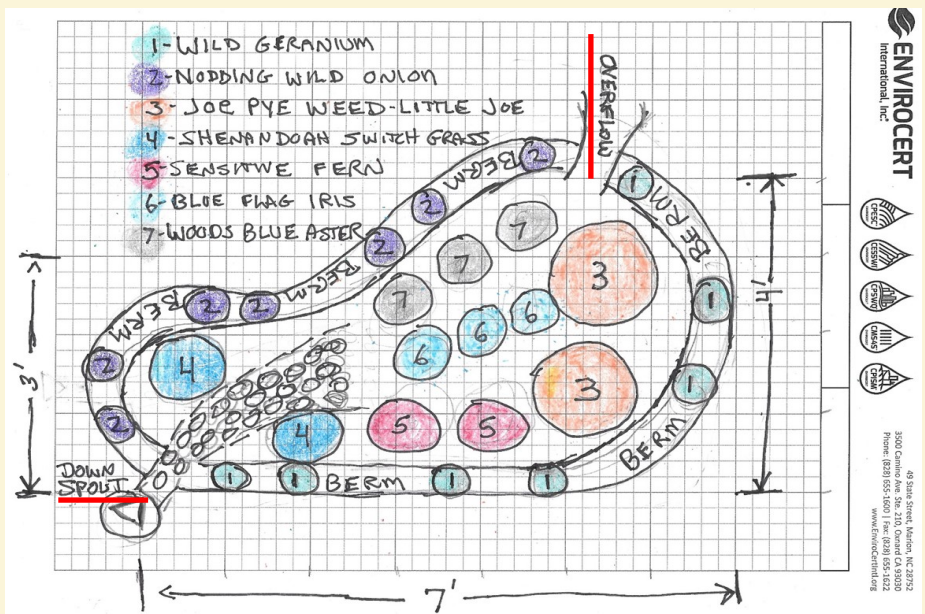 1-WILD GERANIUM
2-NODDING WILD ONION
3-JOE PYE WEED-LITTLE JOE
4-SHENANDOAH SWITCH GRASS
5-SENSITIVE FERN
6-BLUE FLAG IRIS
7-WOODS BLUE ASTER
OVERFLOW
2
BERM
1
BERM
2
7
BERM
2
7
3
BERM
7
1
BERM
2
2
6
6
3'
4'
2
4
6
3
1
2
4
5
5
BERM
DOWN
SPOUT
1
1
BERM
1
1
7'
ENVIROCERT
International, Inc.
CPESC
CESSWI
CPSWQ
CMS4S
CPISM
49 State Street, Marion, NC 28752
3500 Camino Ave. Ste. 210, Oxnard CA 93030
Phone: (828) 655-1600 | Fax: (828) 655-1622
www.EnviroCertIntl.org